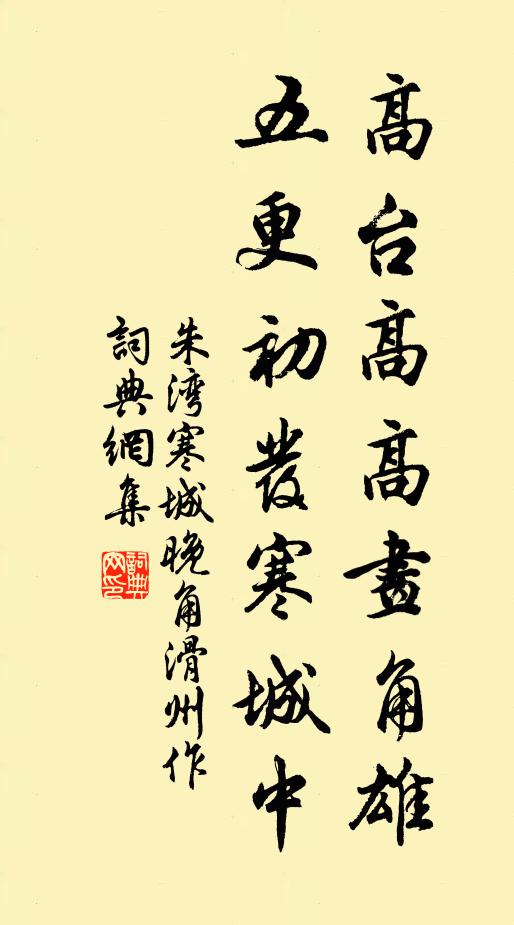 高台高高畫角雄
五更初發寒城中
朱湾寒城晚角滑州作
詞典網集
詞典网印